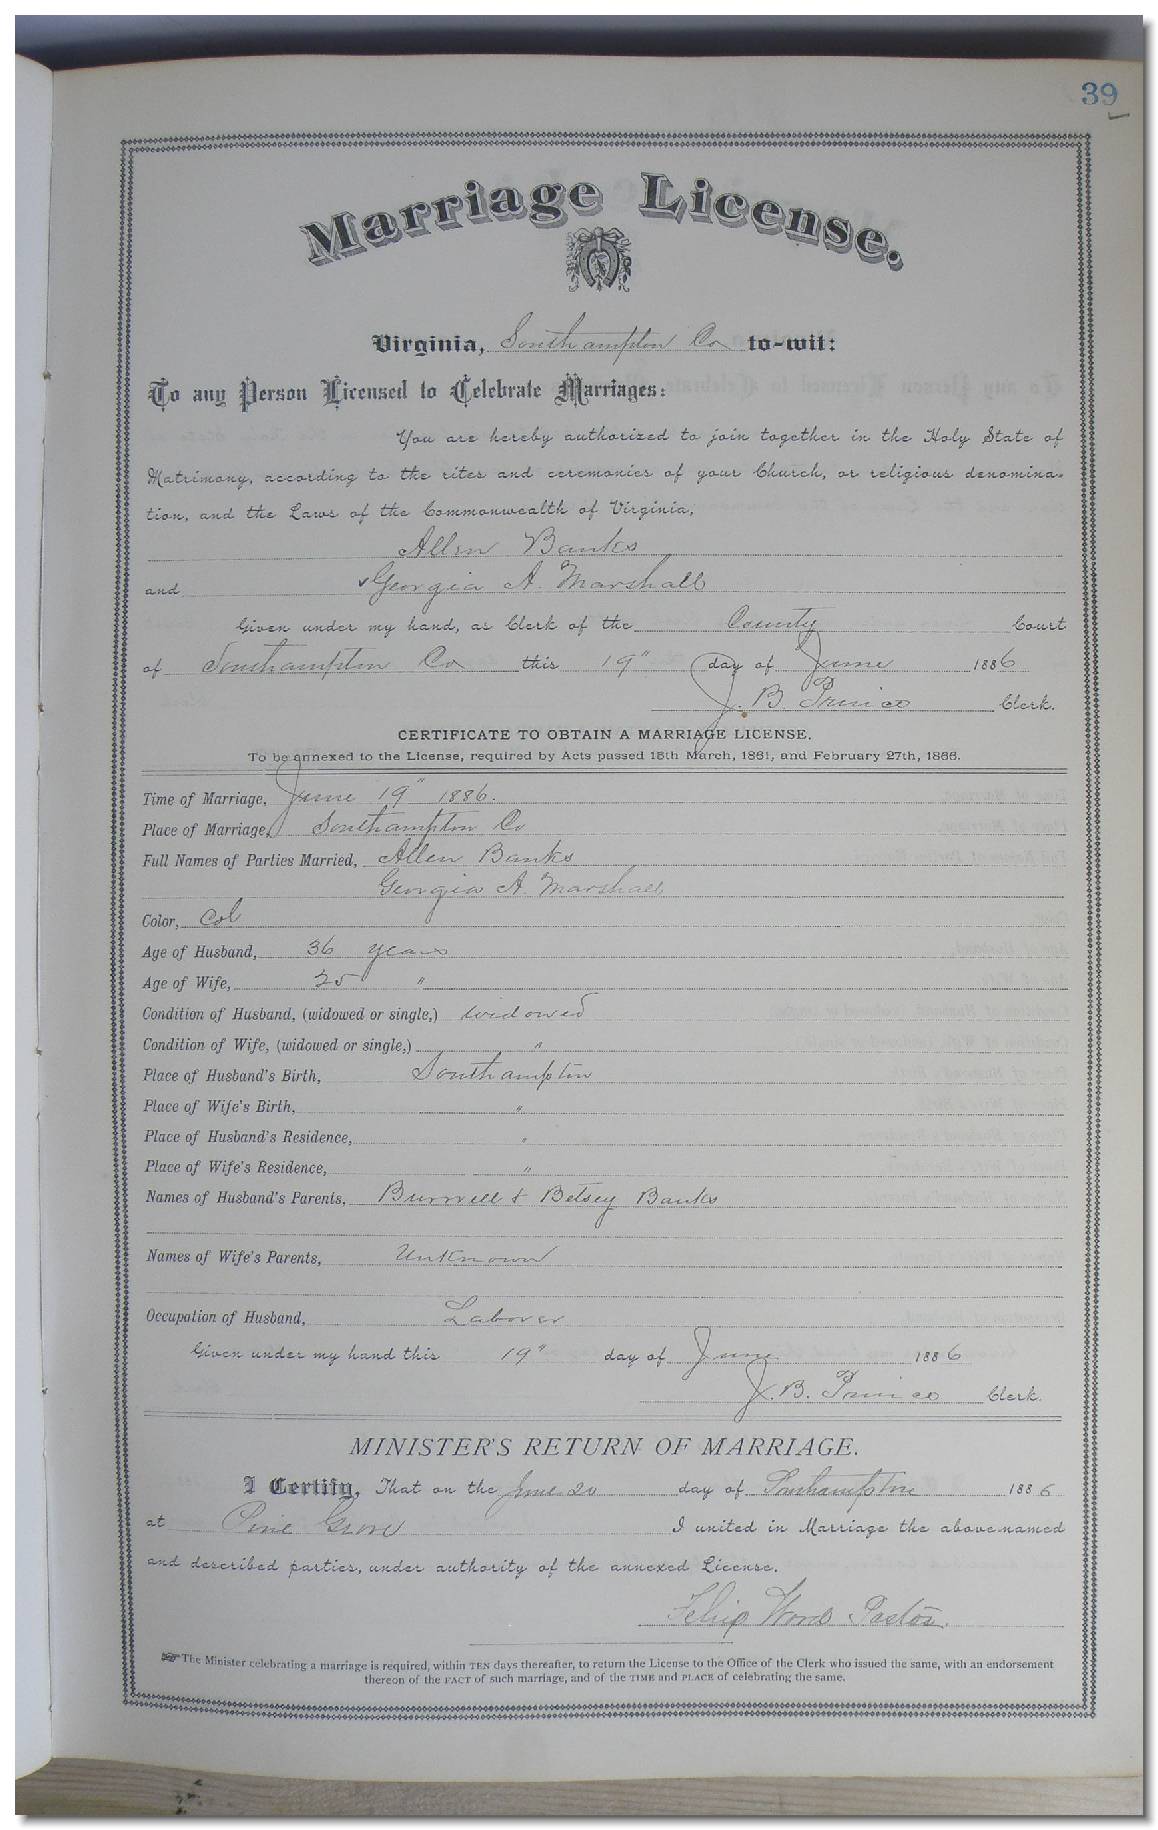 39
Marriage License.
Virginia, Southampton Co to-wit:
To any Person Licensed to Celebrate Marriages:
You are hereby authorized to join together in the Holy State of
Matrimony, according to the rites and ceremonies of your Church, or religious denomina-
tion, and the Laws of the Commonwealth of Virginia,
Allen Banks
and Georgia A. Marshall
Given under my hand, as Clerk of the County Court
of Southampton Co this 19" day of June 1886
J. B. Prince Clerk.
CERTIFICATE TO OBTAIN A MARRIAGE LICENSE.
To be annexed to the License, required by Acts passed 15th March, 1861, and February 27th, 1866.
Time of Marriage, June 19" 1886.
Place of Marriage, Southampton Co
Full Names of Parties Married, Allen Banks
Georgia A. Marshall
Color, Col
Age of Husband, 36 years
Age of Wife, 25 "
Condition of Husband, (widowed or single,) widowed
Condition of Wife, (widowed or single,) "
Place of Husband's Birth, Southampton
Place of Wife's Birth, "
Place of Husband's Residence, "
Place of Wife's Residence, "
Names of Husband's Parents, Burwell & Betsey Banks
Names of Wife's Parents, Unknown
Occupation of Husband, Laborer
Given under my hand this 19" day of June 1886
J. B. Prince Clerk.
MINISTER'S RETURN OF MARRIAGE.
I Certify, That on the June 20 day of Southampton 1886
at Pine Grove I united in Marriage the above-named
and described parties, under authority of the annexed License.
Pastor.
The Minister celebrating a marriage is required, within TEN days thereafter, to return the License to the Office of the Clerk who issued the same, with an endorsement
thereon of the FACT of such marriage, and of the TIME and PLACE of celebrating the same.